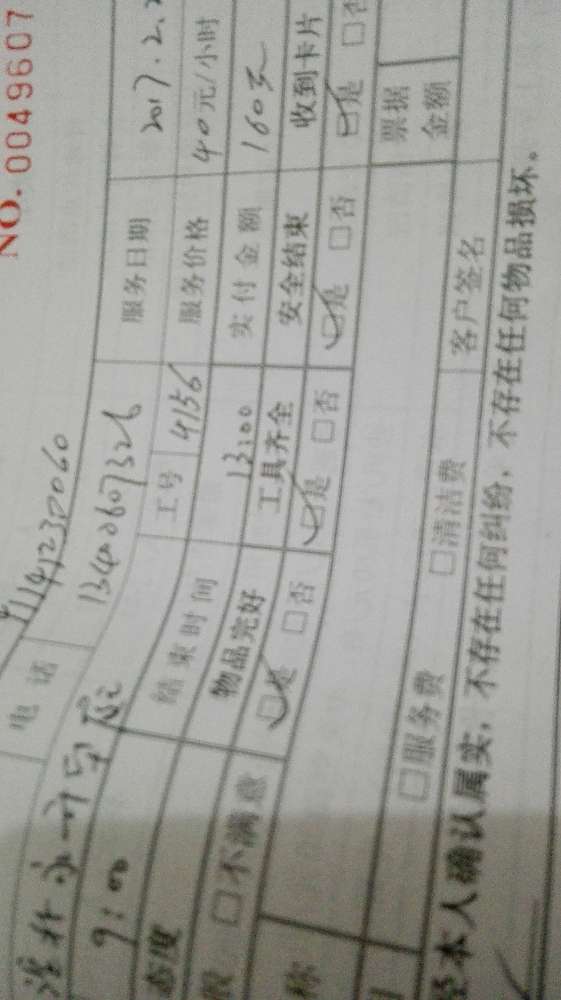 NO. 0049607
电 话 13400607326
服务日期 2017.2.
工号 4156 服务价格 40元/小时
9:00 结束时间 13:00 实付金额 160元
态度 物品完好 工具齐全 安全结束 收到卡片
□不满意 ☑是 □否 ☑是 □否 ☑是 □否 ☑是 □否
称 票据金额
□服务费 □清洁费 客户签名
本人确认属实，不存在任何纠纷，不存在任何物品损坏。